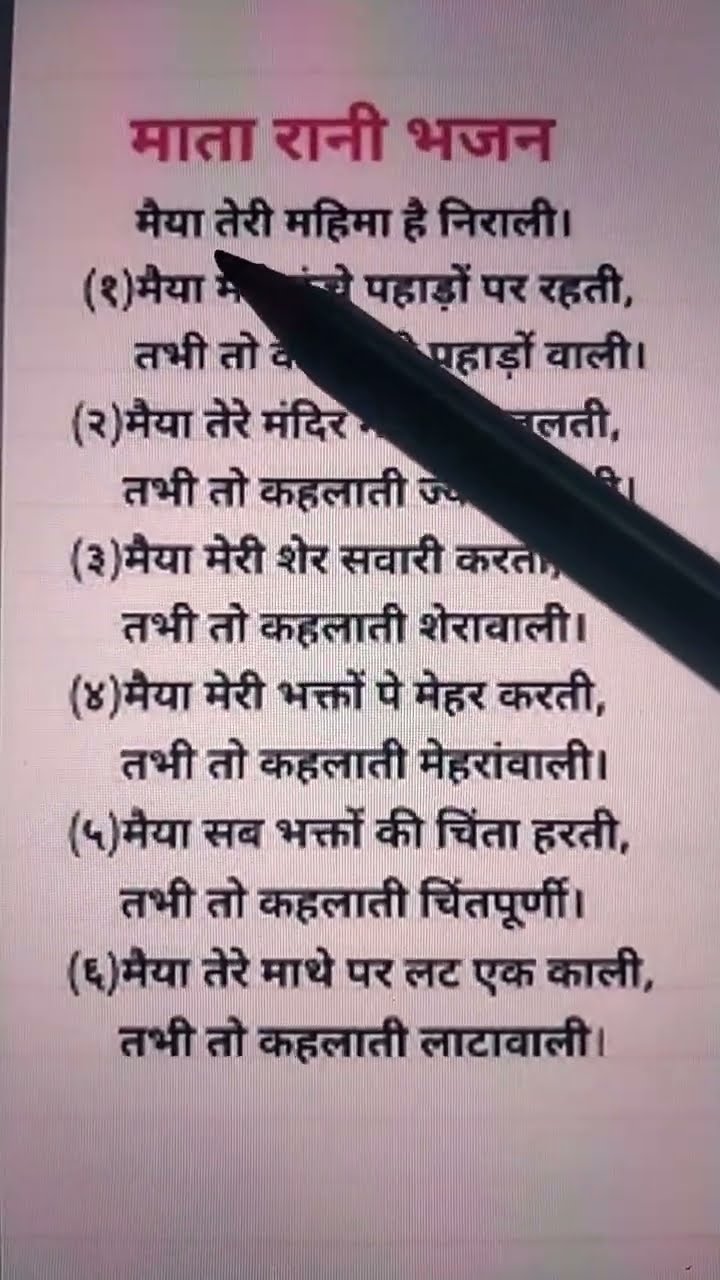 माता रानी भजन
मैया तेरी महिमा है निराली।
(१)मैया पहाड़ों पर रहती,
तभी तो पहाड़ों वाली।
(२)मैया तेरे मंदिर
तभी तो कहलाती
(३)मैया मेरी शेर सवारी करती,
तभी तो कहलाती शेरावाली।
(४)मैया मेरी भक्तों पे मेहर करती,
तभी तो कहलाती मेहरांवाली।
(५)मैया सब भक्तों की चिंता हरती,
तभी तो कहलाती चिंतपूर्णी।
(६)मैया तेरे माथे पर लट एक काली,
तभी तो कहलाती लाटावाली।